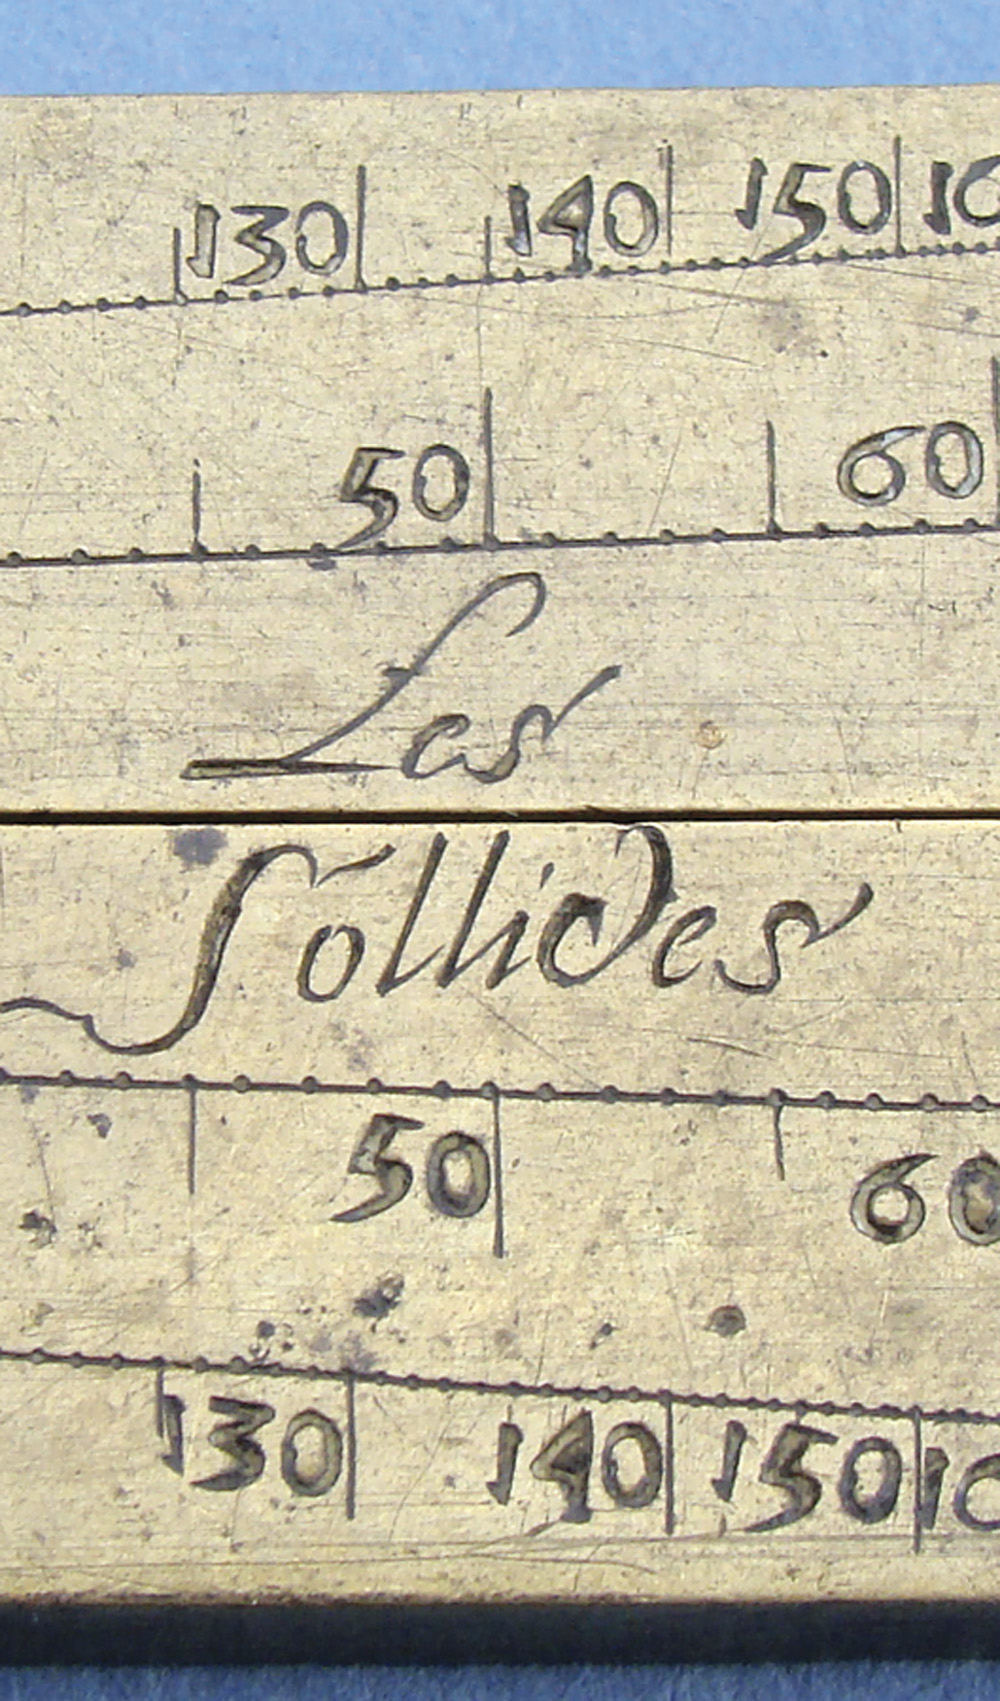 130 140 150 10
50 60
Les
Sollides
50 60
130 140 150 10